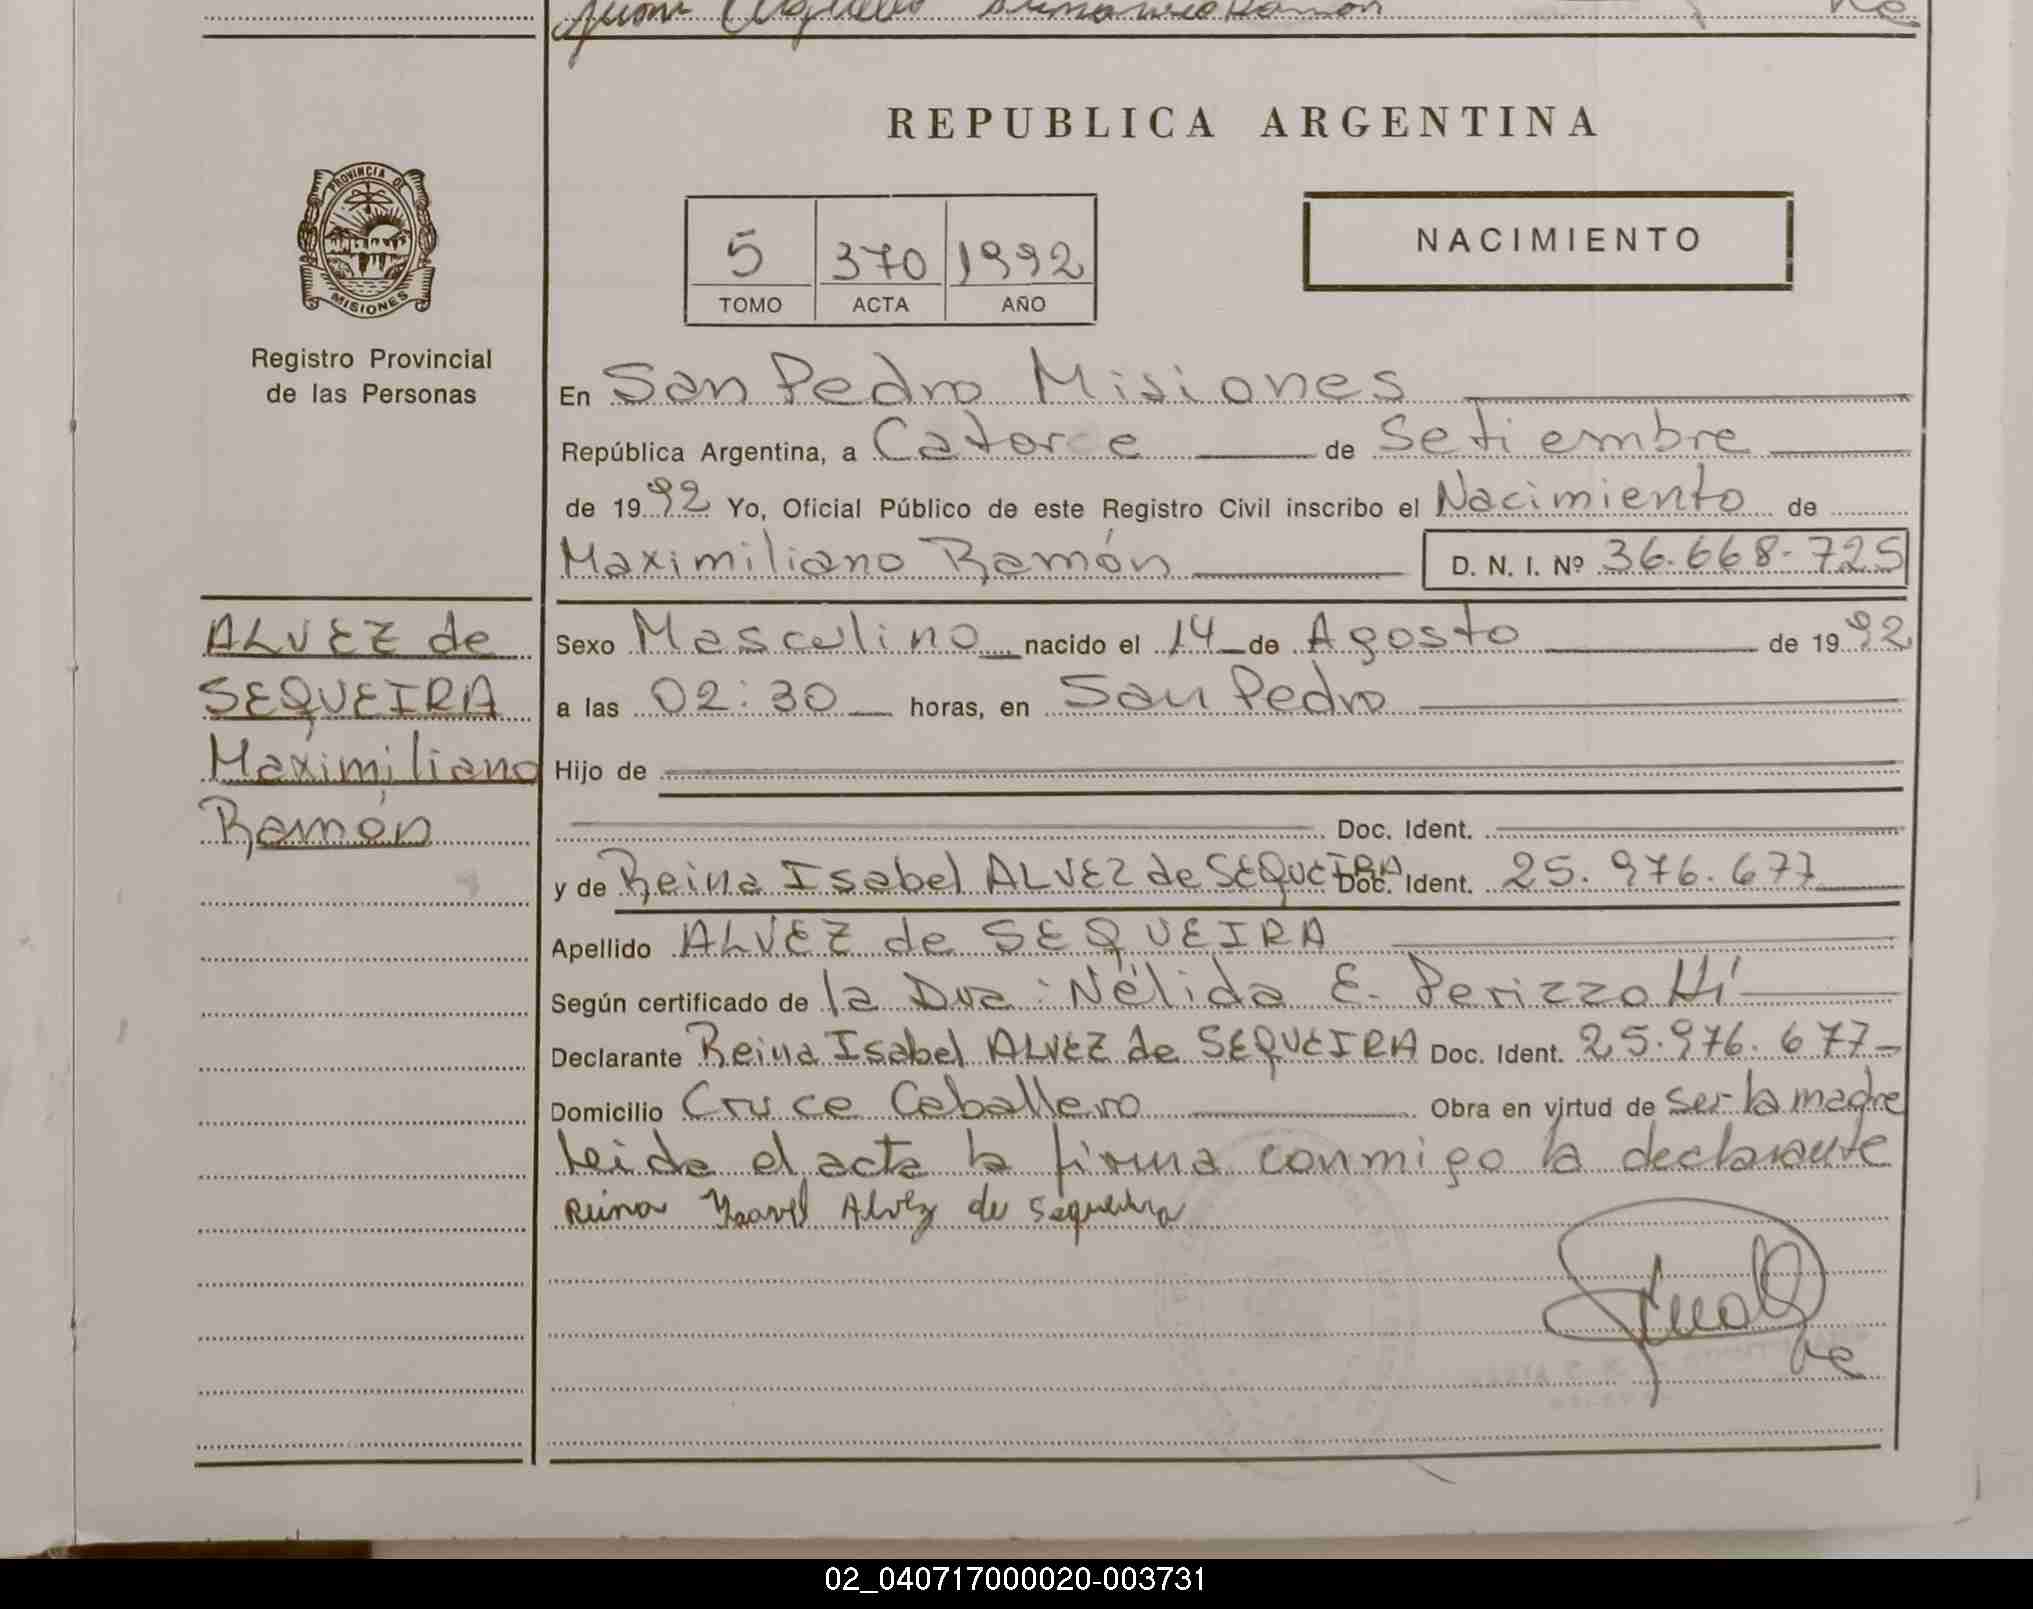 REPUBLICA ARGENTINA
PROVINCIA DE
MISIONES
Registro Provincial
de las Personas
5 370 1992
TOMO ACTA AÑO
NACIMIENTO
En San Pedro Misiones
República Argentina, a Catorce de Setiembre
de 1992 Yo, Oficial Público de este Registro Civil inscribo el Nacimiento de
Maximiliano Ramón D. N. I. Nº 36.668-725
ALVEZ de
SEQUEIRA
Maximiliano
Ramón
Sexo Masculino nacido el 14 de Agosto de 1992
a las 02:30 horas, en San Pedro
Hijo de
Doc. Ident.
y de Reina Isabel ALVEZ de SEQUEIRA Doc. Ident. 25.976.677
Apellido ALVEZ de SEQUEIRA
Según certificado de la Dra: Nélida E. Perizzotti
Declarante Reina Isabel ALVEZ de SEQUEIRA Doc. Ident. 25.976.677
Domicilio Cruce Caballero Obra en virtud de ser la madre
Leida el acta la firma conmigo la declarante
Reina Ysavel Alvez de Sequeira
02_040717000020-003731